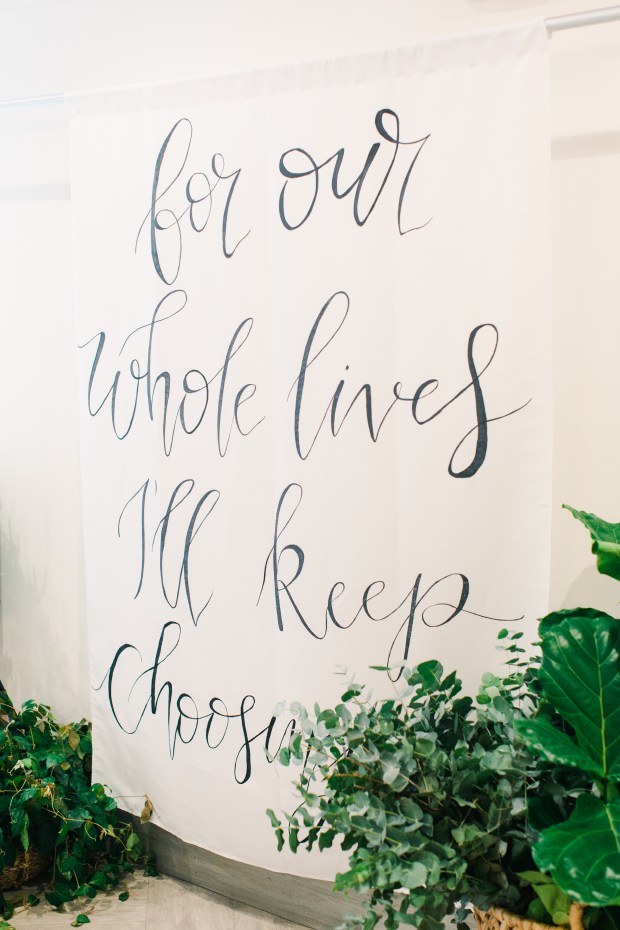 for our
whole lives
I'll keep
choosing